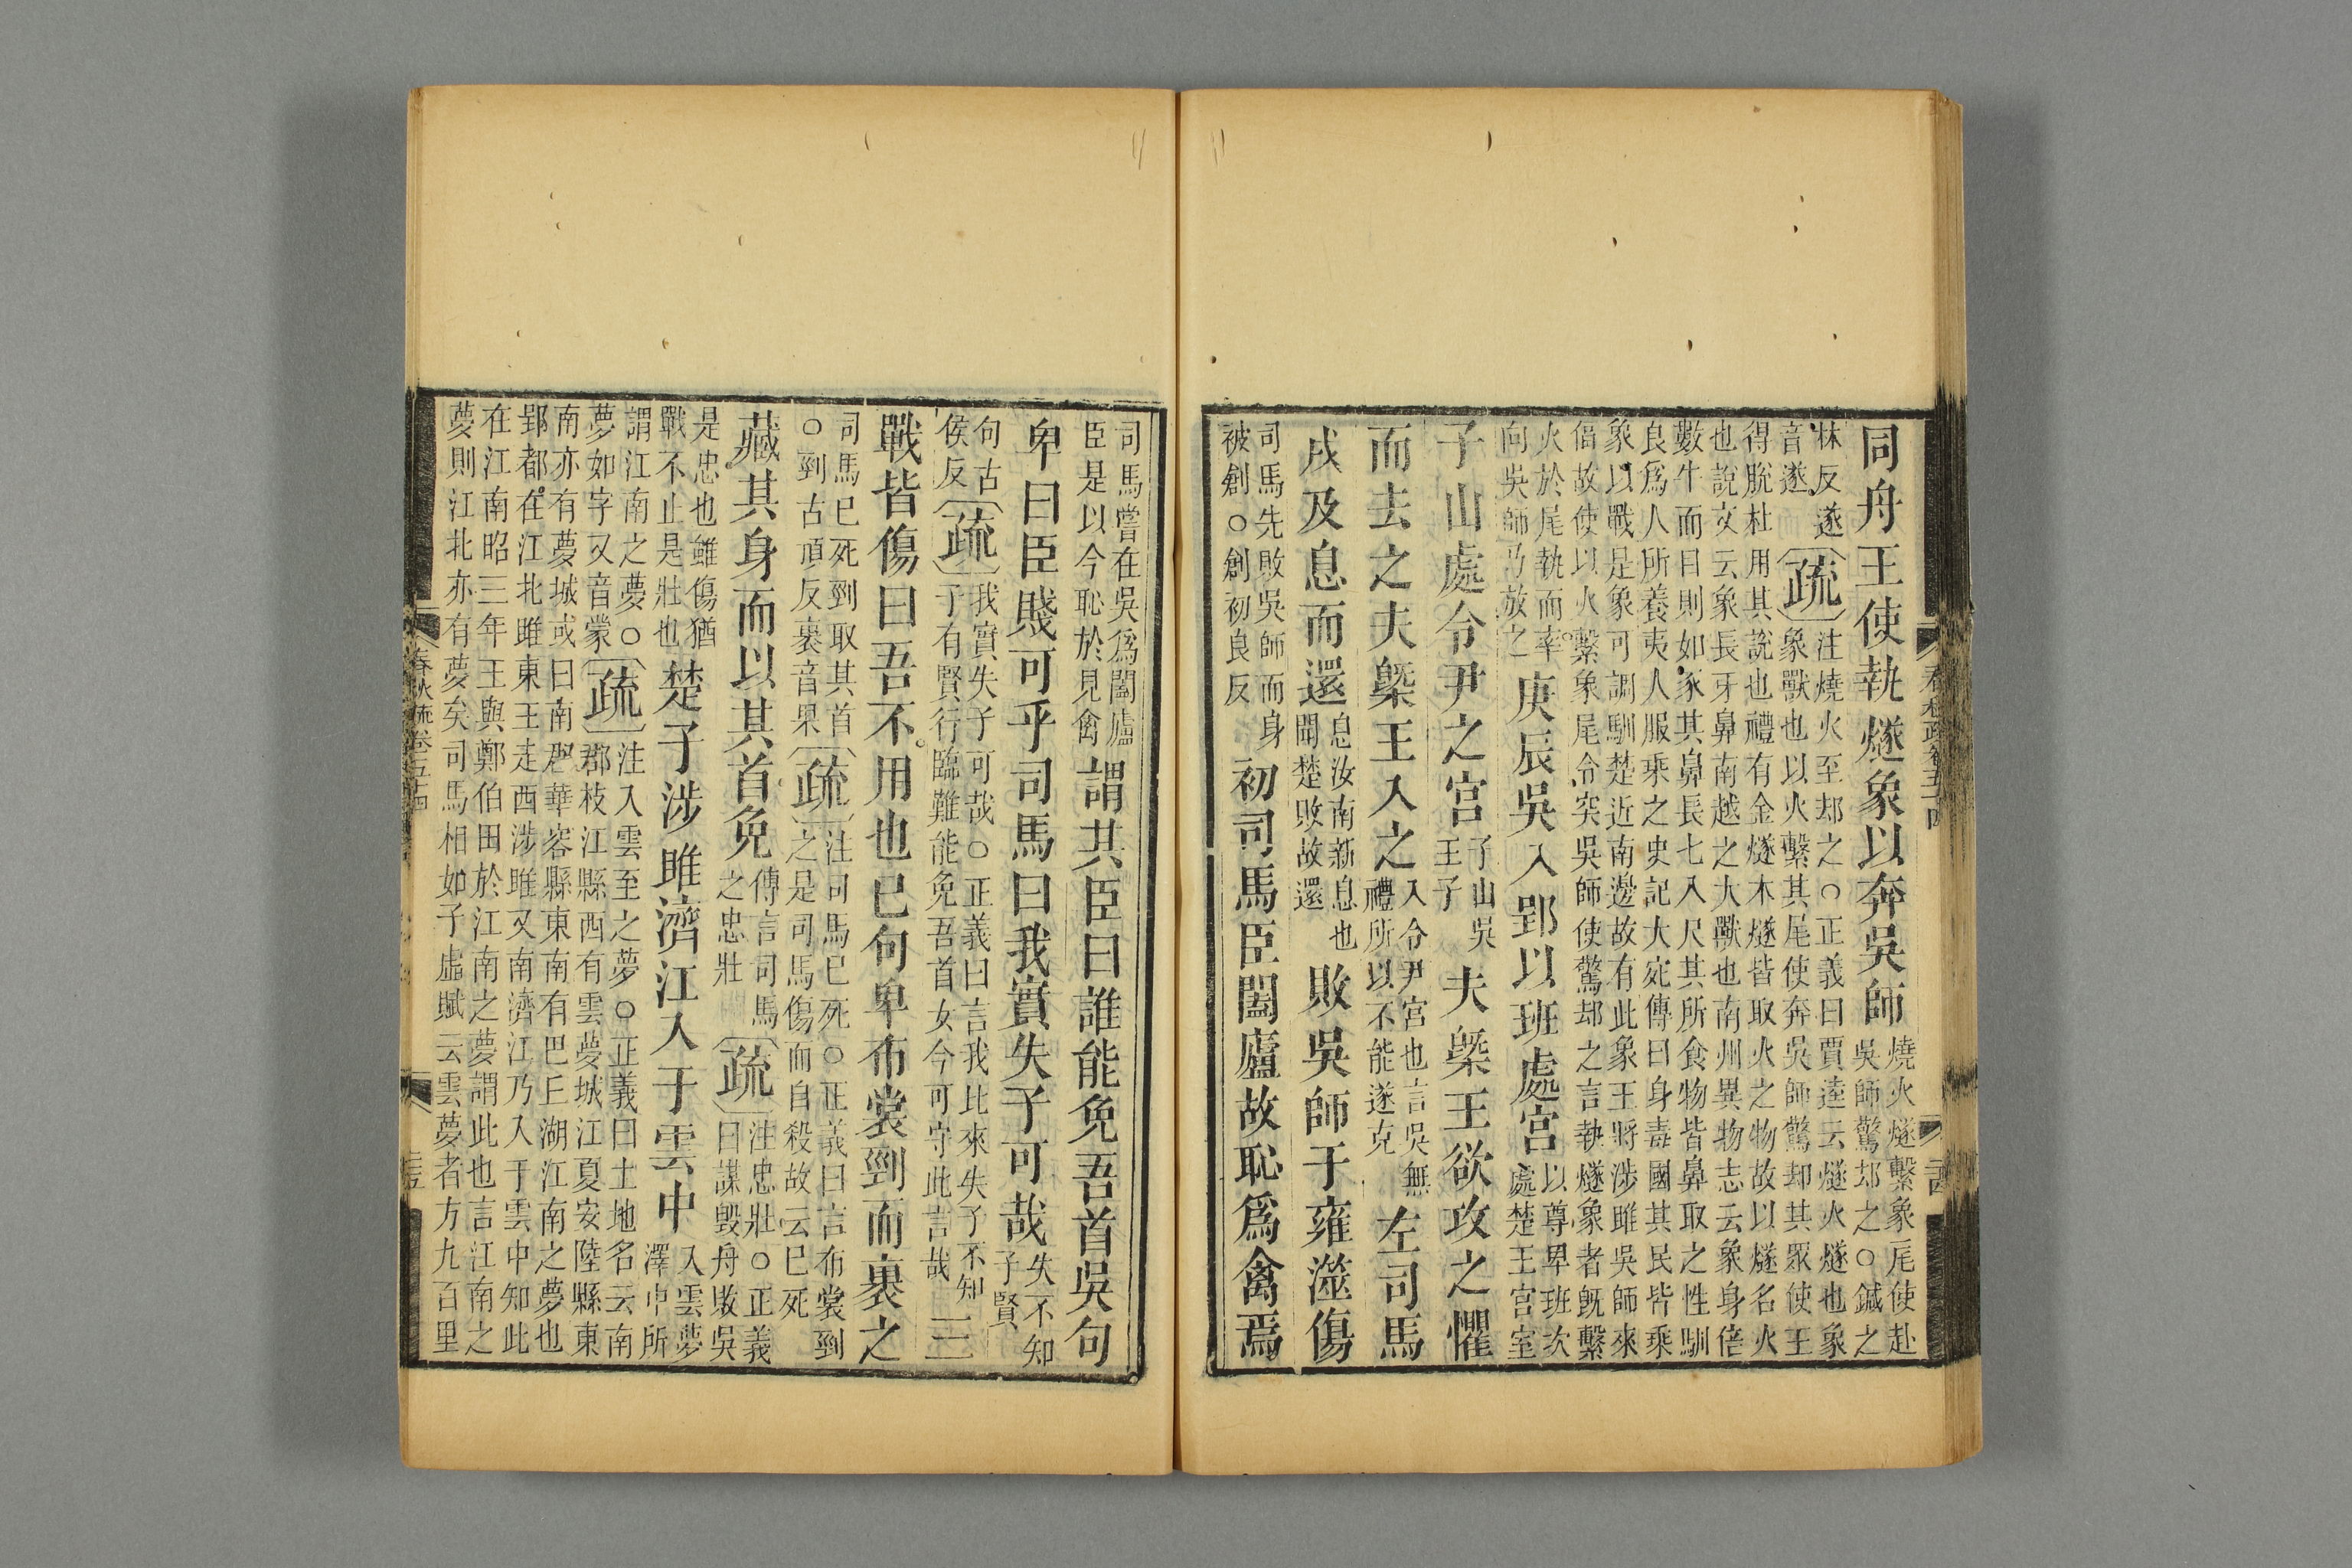 同舟王使執燧象以奔吳師燒火燧繫象尾使赴吳師驚却之○鍼之
林反遂音遂〔疏〕注燒火至却之○正義曰賈逵云燧火燧也象象獸也以火繫其尾使奔吳師驚却其眾使王
得脫杜用其說也禮有金燧木燧皆取火之物故以燧名火
也說文云象長牙鼻南越之大獸也南州異物志云象身倍
數牛而目則如豕其鼻長七八尺其所食物皆鼻取之性馴
良爲人所養夷人服乘之史記大宛傳曰身毒國其民皆乘
象以戰是象可調馴楚近南邊故有此象王將涉雎吳師來
偪故使以火繫象尾令突吳師使驚却之言執燧象者旣繫
火於尾執而率向吳師乃放之庚辰吳入郢以班處宮以尊卑班次處楚王宮室
子山處令尹之宮子山吳王子夫槩王欲攻之懼
而去之夫槩王入之入令尹宮也言吳無禮所以不能遂克左司馬
戌及息而還息汝南新息也聞楚敗故還敗吳師于雍澨傷
司馬先敗吳師而身被創○創初良反初司馬臣闔廬故恥爲禽焉
春秋疏卷五十四
二十四
司馬嘗在吳爲闔廬臣是以今恥於見禽謂其臣曰誰能免吾首吳句
卑曰臣賤可乎司馬曰我實失子可哉失不知子賢
句古侯反〔疏〕我實失子可哉○正義曰言我比來失子不知子有賢行臨難能免吾首女今可守此言哉三
戰皆傷曰吾不用也已句卑布裳剄而裹之
司馬已死剄取其首○剄古頂反裹音果〔疏〕注司馬已死○正義曰言布裳剄之是司馬傷而自殺故云已死
藏其身而以其首免傳言司馬之忠壯〔疏〕注忠壯○正義曰謀毀舟敗吳
是忠也雖傷猶戰不止是壯也楚子涉雎濟江入于雲中入雲夢澤中所
謂江南之夢○夢如字又音蒙〔疏〕注入雲至之夢○正義曰土地名云南郡枝江縣西有雲夢城江夏安陸縣東
南亦有夢城或曰南郡華容縣東南有巴丘湖江南之夢也
郢都在江北雎東王走西涉雎又南濟江乃入于雲中知此
在江南昭三年王與鄭伯田於江南之夢謂此也言江南之
夢則江北亦有夢矣司馬相如子虛賦云雲夢者方九百里
春秋疏卷五十四